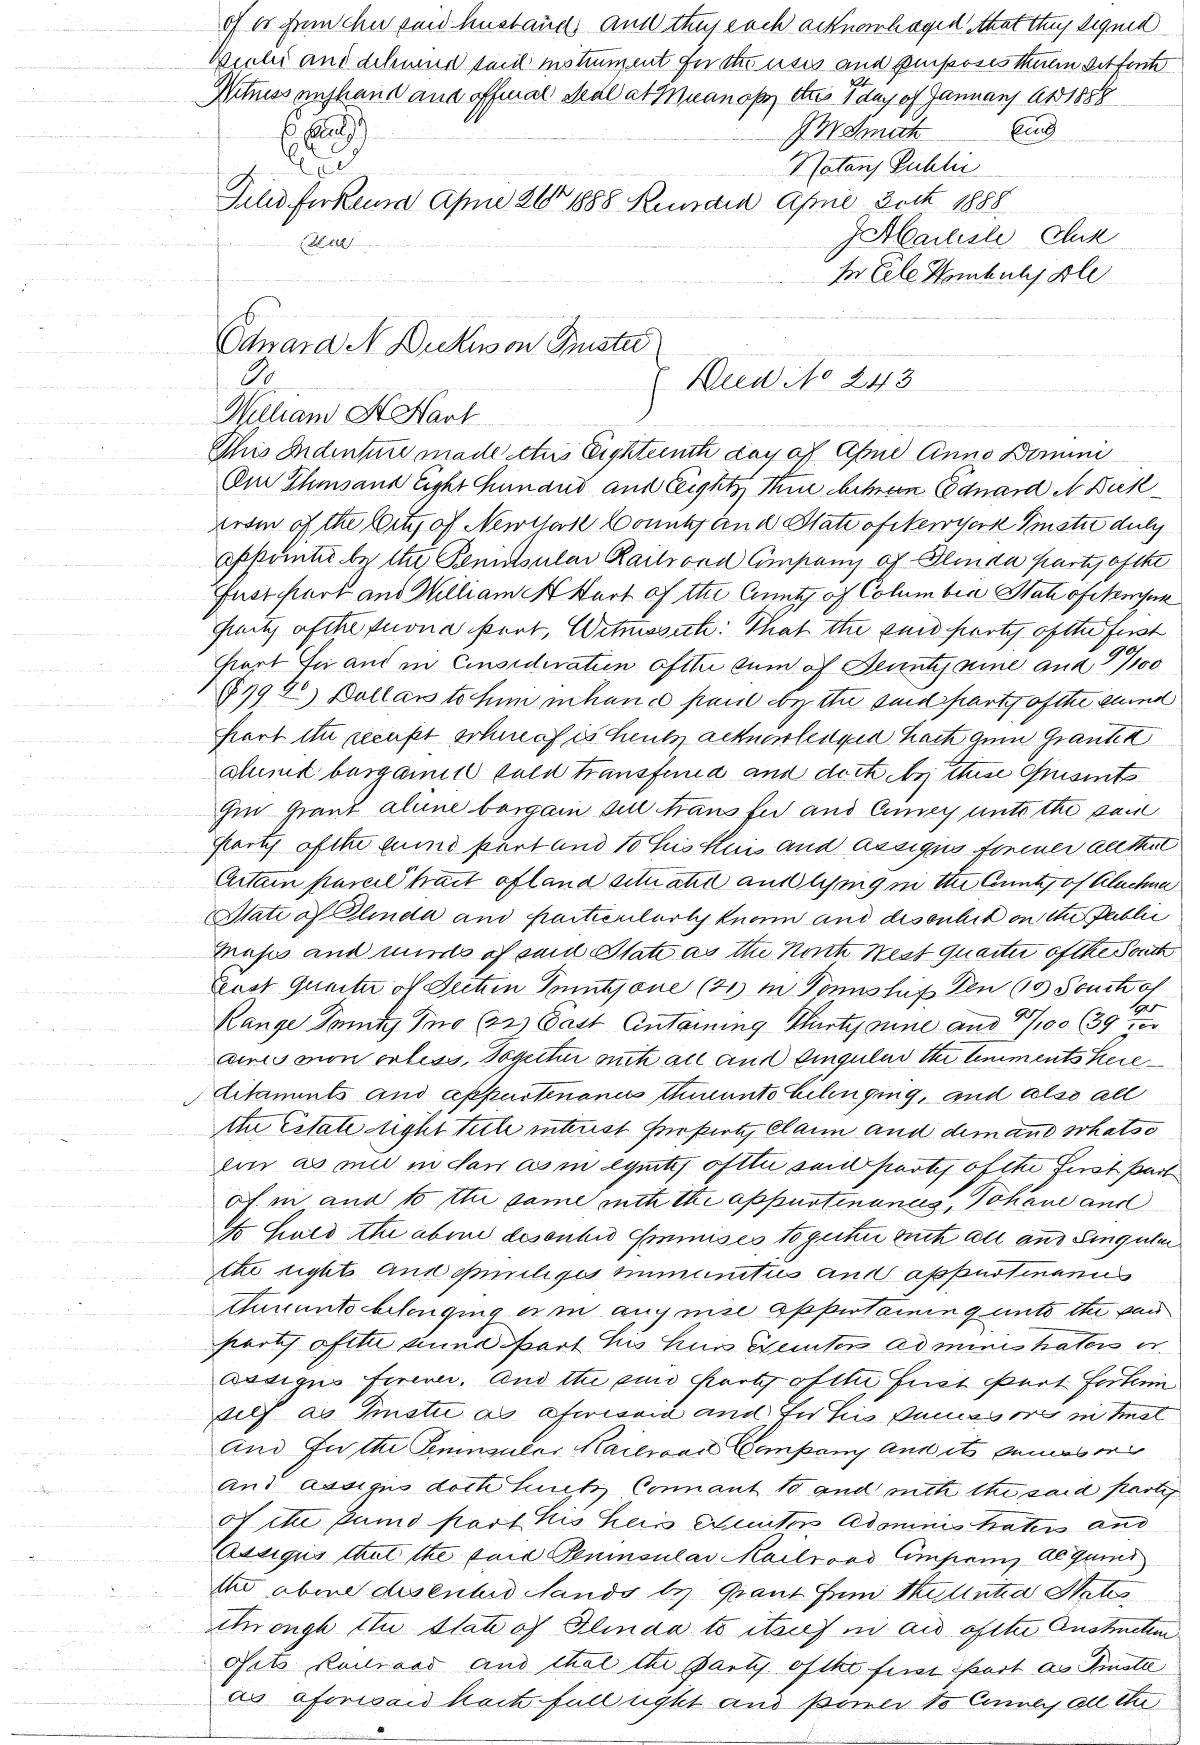 of or from her said husband, and they each acknowledged that they signed
sealed and delivered said instrument for the uses and purposes therein set forth
Witness my hand and official Seal at Micanopy this 9th day of January AD 1888
J W Smith Seal
Notary Public
Filed for Record April 26th 1888 Recorded April 30th 1888
Seal
J A Carlisle Clerk
pr Eele Wimberly DC
Edward N Dickerson Trustee
To
Deed No 243
William H Hart
This Indenture made this Eighteenth day of April Anno Domini
One Thousand Eight hundred and Eighty three between Edward N Dick-
erson of the City of New York County and State of New York Trustee duly
appointed by the Peninsular Railroad Company of Florida party of the
first part and William H Hart of the County of Columbia State of New York
party of the second part, Witnesseth: That the said party of the first
part for and in Consideration of the sum of Seventy nine and 90/100
($79 90) Dollars to him in hand paid by the said party of the second
part the receipt whereof is hereby acknowledged hath given Granted
aliened bargained sold transfered and doth by these presents
give grant aliene bargain sell transfer and Convey unto the said
party of the second part and to his heirs and assigns forever all that
Certain parcel tract of land situated and lying in the County of Alachua
State of Florida and particularly known and described on the public
maps and records of said State as the North West quarter of the South
East Quarter of Section Twenty one (21) in Township Ten (10) South of
Range Twenty Two (22) East Containing Thirty nine and 95/100 (39 95/100
acres more or less, Together with all and singular the tenements here-
ditaments and appurtenances thereunto belonging, and also all
the Estate right title interest property Claim and demand whatso
ever as well in law as in equity of the said party of the first part
of in and to the same with the appurtenances, To have and
to hold the above described premises together with all and Singular
the rights and privileges immunities and appurtenances
thereunto belonging or in any wise appertaining unto the said
party of the second part his heirs Executors administrators or
assigns forever. And the said party of the first part for him
self as Trustee as aforesaid and for his successors in trust
and for the Peninsular Railroad Company and its successors
and assigns doth hereby Covenant to and with the said party
of the second part his heirs Executors Administrators and
Assigns that the said Peninsular Railroad Company acquired
the above described lands by grant from the United States
through the State of Florida to itself in aid of the Construction
of its Railroad and that the party of the first part as Trustee
as aforesaid hath full right and power to Convey all the